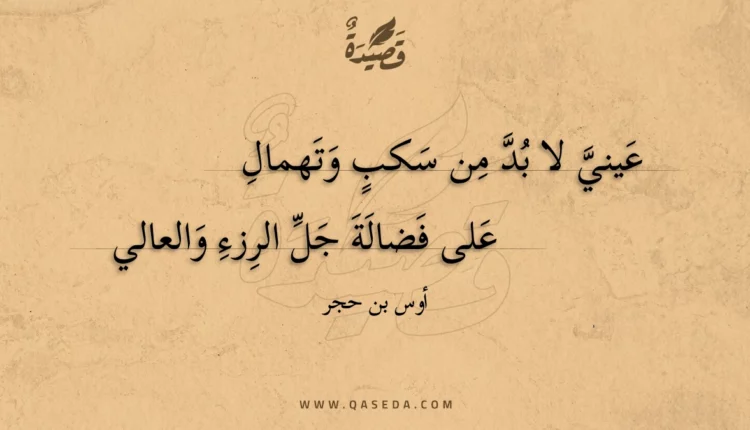 قَصِيدَةٌ
عَينيَّ لا بُدَّ مِن سَكبٍ وَتَهمالِ
عَلى فَضالَةَ جَلِّ الرِزءِ وَالعالي
أوس بن حجر
WWW.QASEDA.COM